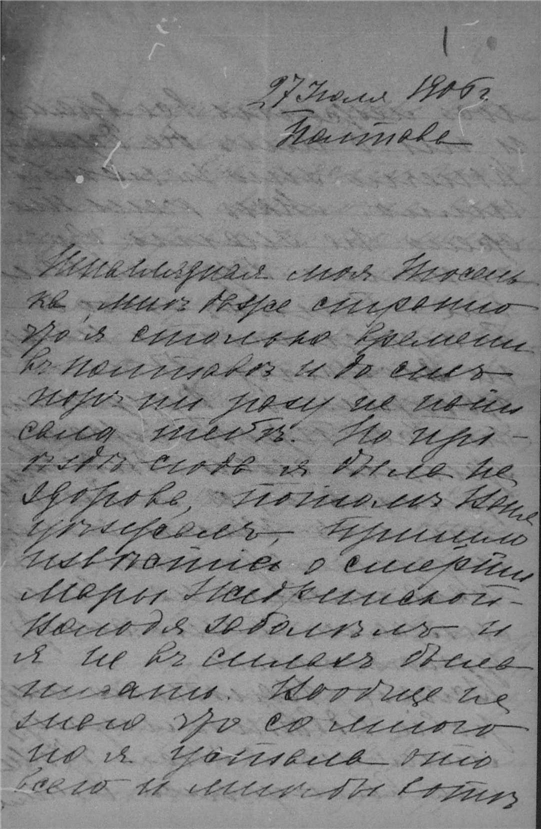 27 Июля 1906 г
Полтава
Ненаглядная моя Тюсень
ка, мнѣ даже странно
что я столько времени
въ Полтавѣ и до сихъ
поръ ни разу не напи
сала тебѣ. По прі-
ѣздѣ сюда я была не
здорова, потомъ
уѣзжалъ, пришло
извѣстіе о смерти
Мары
Володя заболѣлъ и
я не въ силахъ была
писать. Вообще не
знаю что со мною
но я устала отъ
всего и мнѣ бы хотѣ